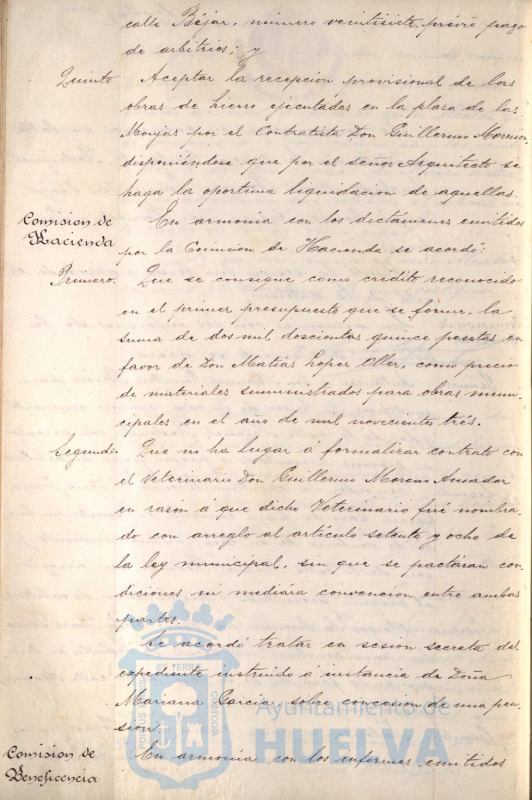 calle Béjar, número veintisiete, previo pago
de arbitrios; y
Quinto Aceptar la recepcion provisional de las
obras de hierro ejecutadas en la plaza de las
Monjas por el Contratista Don Guillermo
disponiéndose que por el señor Arquitecto se
haga la oportuna liquidacion de aquellas.
Comision de Hacienda
En armonía con los dictámenes emitidos
por la Comision de Hacienda se acordó:
Primero. Que se consigne como crédito reconocido
en el primer presupuesto que se forme, la
suma de dos mil doscientas quince pesetas en
favor de Don Matías Lopez Oller, como precio
de materiales suministrados para obras muni-
cipales en el año de mil novecientos tres.
Segundo. Que no ha lugar á formalizar contrato con
el Veterinario Don Guillermo Moreno Amador
en razón á que dicho Veterinario fué nombra-
do con arreglo al artículo setenta y ocho de
la ley municipal, sin que se pactáran con-
diciones ni mediára convencion entre ambas
partes.
Se acordó tratar en sesion secreta del
expediente instruido á instancia de Doña
Mariana Garcia sobre concesion de una pen-
sion.
Comision de Beneficencia
En armonía con los informes emitidos
Ayuntamiento de
HUELVA